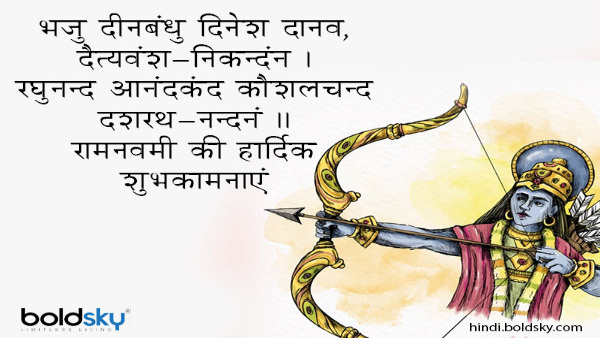 भजु दीनबंधु दिनेश दानव,
दैत्यवंश–निकन्दंन ।
रघुनन्द आनंदकंद कौशलचन्द
दशरथ–नन्दनं ॥
रामनवमी की हार्दिक
शुभकामनाएं
boldsky®
LIMITLESS LIVING
hindi.boldsky.com